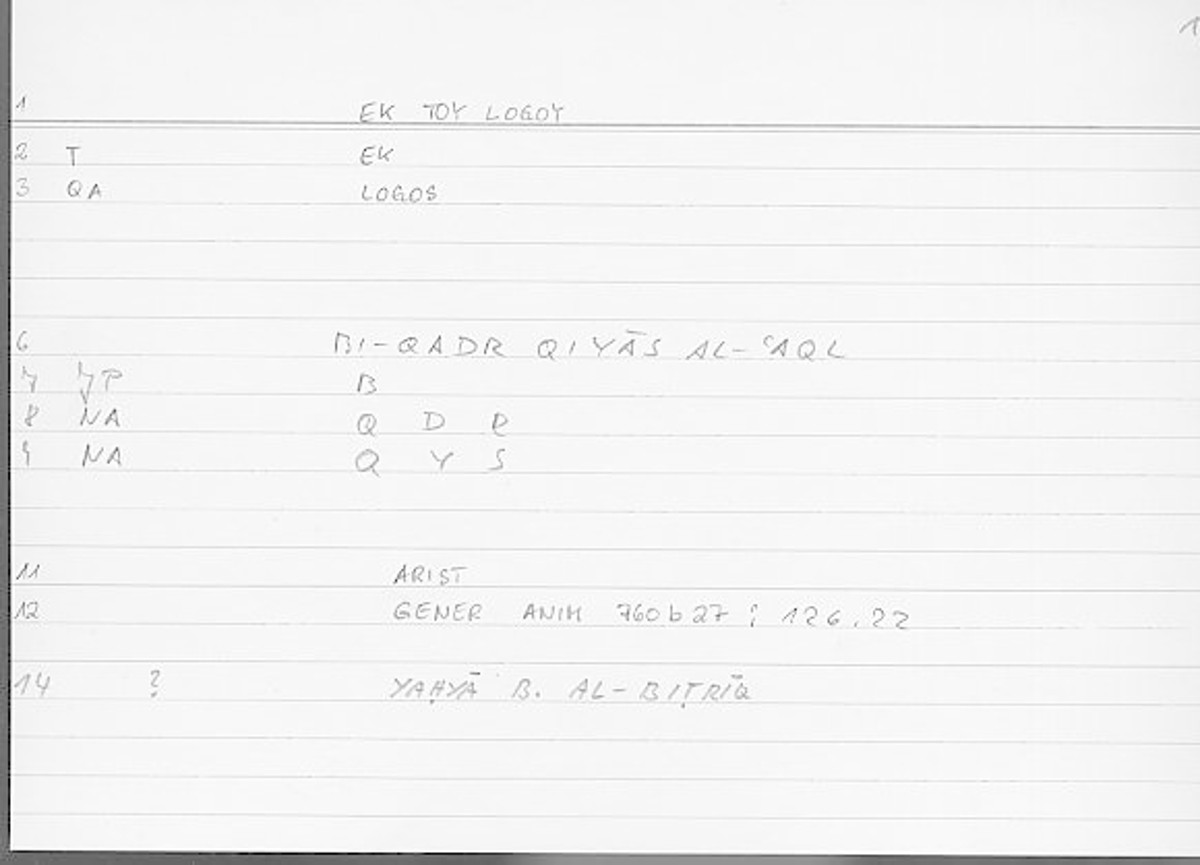 1
1 EK TOY LOGOY
2 T EK
3 QA LOGOS
6 BI-QADR QIYĀS AL-ʿAQL
7 JP B
8 NA Q D R
9 NA Q Y S
11 ARIST
12 GENER ANIM 760b27 ; 126.22
14 ? YAḤYĀ B. AL-BIṬRĪQ